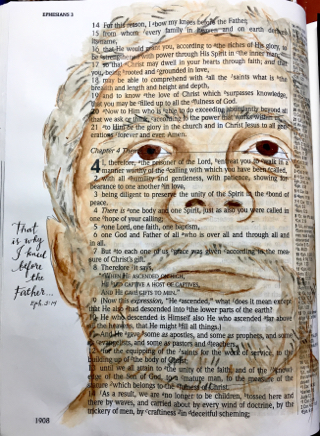 EPHESIANS 3
14 For this reason, I bow my knees before the Father,
15 from whom every family in heaven and on earth
its name,
16 that He would grant you, according to the riches of His glory, to
be strengthened with power through His Spirit in the inner man,
17 so that Christ may dwell in your hearts through faith; and that
you, being rooted and grounded in love,
18 may be able to comprehend with all the saints what is the
breadth and length and height and depth,
19 and to know the love of Christ which surpasses knowledge,
that you may be filled up to all the fullness of God.
20 Now to Him who is able to do exceeding abundantly beyond all
that we ask or think, according to the power that works within us,
21 to Him be the glory in the church and in Christ Jesus to all gen-
erations forever and ever. Amen.
Chapter 4 Theme
4 I, therefore, the prisoner of the Lord, entreat you to walk in a
manner worthy of the calling with which you have been called,
2 with all humility and gentleness, with patience, showing for-
bearance to one another in love,
3 being diligent to preserve the unity of the Spirit in the bond of
peace.
4 There is one body and one Spirit, just as also you were called in
one hope of your calling;
5 one Lord, one faith, one baptism,
6 one God and Father of all who is over all and through all and
in all.
7 But to each one of us grace was given according to the mea-
sure of Christ's gift.
8 Therefore it says,
"WHEN HE ASCENDED ON HIGH,
HE LED CAPTIVE A HOST OF CAPTIVES,
AND HE GAVE GIFTS TO MEN."
9 (Now this expression, "He ascended," what does it mean except
that He also had descended into the lower parts of the earth?
10 He who descended is Himself also He who ascended far above
all the heavens, that He might fill all things.)
11 And He gave some as apostles, and some as prophets, and some
as evangelists, and some as pastors and teachers,
12 for the equipping of the saints for the work of service, to the
building up of the body of Christ;
13 until we all attain to the unity of the faith, and of the knowl-
edge of the Son of God, to a mature man, to the measure of the
stature which belongs to the fulness of Christ.
14 As a result, we are no longer to be children, tossed here and
there by waves, and carried about by every wind of doctrine, by the
trickery of men, by craftiness in deceitful scheming;
That
is why
I kneel
before
the
Father...
Eph. 3:14
1908